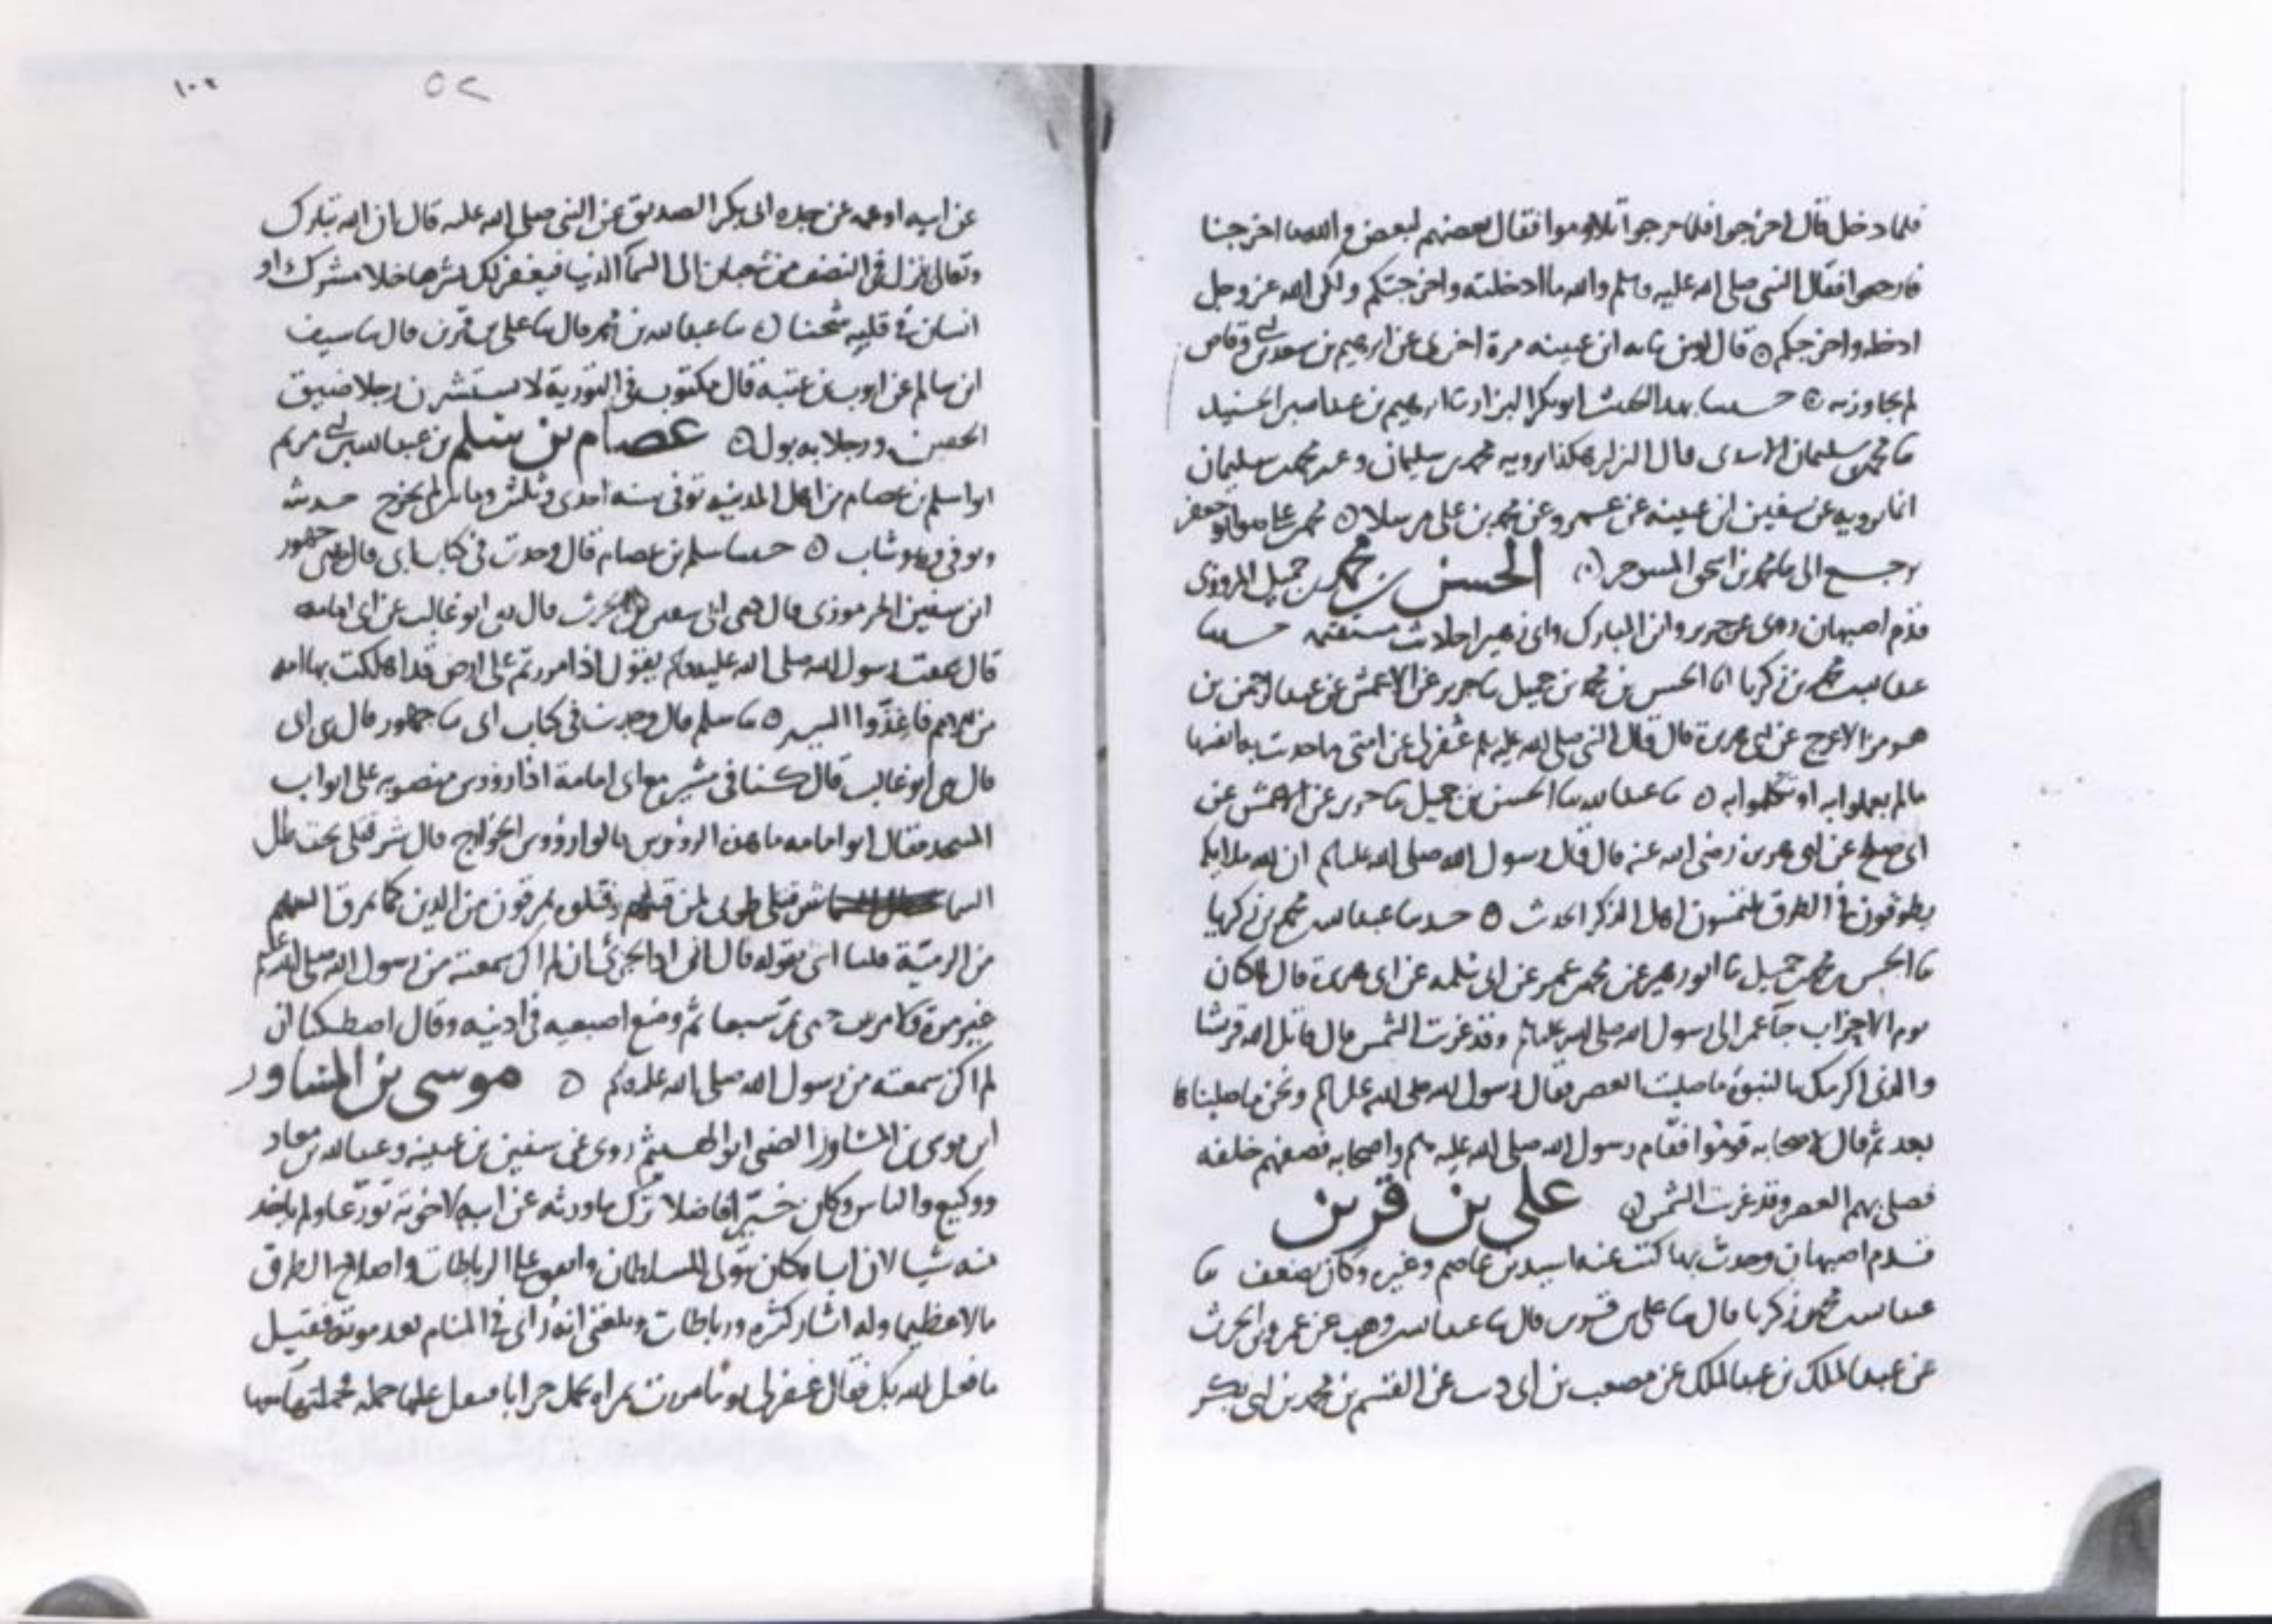 فلما دخل قال اخرجوا فلما خرجوا تلاوموا فقال بعضهم لبعض والله ما اخرجنا
فارجعوا فقال النبي صلى الله عليه وسلم والله ما ادخلته واخرجتكم ولكن الله عز وجل
ادخله واخرجكم قال لوين ثنا به ابن عيينه مرة اخرى عن ابرهيم بن سعد بن ابي وقاص
لم يجاوز به حدثنا بهذا الحديث ابو بكر البزار ثنا ابرهيم بن عبد الله بن الجنيد
ثنا محمد بن سليمان الاسدي قال البزار هكذا يرويه محمد بن سليمان وغير محمد بن سليمان
انما يرويه عن سفين ابن عيينه عن عمرو عن محمد بن علي مرسلا محمد بن علي هو ابو جعفر
رجع الى محمد بن اسحق المسوحي الحسن بن محمد بن جميل المروزي
قدم اصبهان روى عن جرير وابن المبارك وابي زهير احاديث مستقيمه حدثنا
عبد الله بن محمد بن زكريا انا الحسن بن محمد بن جميل ثنا جرير عن الاعمش عن عبد الرحمن بن
هرمز الاعرج عن ابي هريرة قال قال النبي صلى الله عليه وسلم غفر لي عن امتي ما حدثت به انفسها
ما لم يعملوا به او تكلموا به ثنا عبد الله ثنا الحسن بن جميل ثنا جرير عن الاعمش عن
ابي صلح عن ابي هريرة رضي الله عنه قال قال رسول الله صلى الله عليه وسلم ان لله ملايكة
يطوفون في الطرق يلتمسون اهل الذكر الحديث حدثنا عبد الله بن محمد بن زكريا
ثنا الحسن بن محمد بن جميل ثنا ابو زهير عن محمد بن عمرو عن ابي سلمه عن ابي هريرة قال لما كان
يوم الاحزاب جاء عمر الى رسول الله صلى الله عليه وسلم وقد غربت الشمس قال قاتل الله قريشا
والذي اكرمك بالنبوة ما صليت العصر فقال رسول الله صلى الله عليه وسلم ونحن ما صليناها
بعد ثم قال لاصحابه قوموا فقام رسول الله صلى الله عليه وسلم واصحابه فصفهم خلفه
فصلى بهم العصر وقد غربت الشمس علي بن قرين
قدم اصبهان وحدث بها كتب عنه اسيد بن عاصم وغيره وكان يضعف ثنا
عبد الله بن محمد بن زكريا قال ثنا علي بن قرين قال ثنا عبد الله بن وهب عن عمرو بن الحرث
عن عبد الملك بن عبد الملك عن مصعب بن ابي ذئب عن القسم بن محمد بن ابي بكر
١٠٢
٥٢
عن ابيه او عمه عن جده ابي بكر الصديق عن النبي صلى الله عليه قال ان الله تبارك
وتعالى ينزل في النصف من شعبان الى السمآ الدنيا فيغفر لكل بشر ما خلا مشرك او
انسان في قلبه شحنا ثنا عبد الله بن محمد قال ثنا علي بن قرين قال ثنا سيف
ابن سالم عن ايوب بن عتبة قال مكتوب في التورية لا تستشيرن رجلا ضيق
الخفين ورجلا به بول عصام بن سلم بن عبد الله بن ابي مريم
ابو اسلم بن عصام من اهل المدينه توفي سنه احدى وثلثين ومائتين لم يخرج حديثه
وتوفي وهو شاب حدثنا سلم بن عصام قال وجدت في كتاب ابي قال حدثني جمهور
ابن سفين الجرموزي قال حدثني ابي سفين بن الحرث قال حدثني ابو غالب عن ابي امامه
قال سمعت رسول الله صلى الله عليه وسلم يقول اذا مررتم على ارض قد اهلكت بها امه
من الامم فاغذوا السير ثنا سلم قال وجدت في كتاب ابي ثنا جمهور قال حدثني ابي
قال حدثني ابو غالب قال كنا في مسير مع ابي امامة اذا رؤوس منصوبه على ابواب
المسجد فقال ابو امامه ما هذه الرؤوس قالوا رؤوس الخوارج قال شر قتلى تحت ظل
السما شر قتلى طوبى لمن قتلهم وقتلوه يمرقون من الدين كما يمرق السهم
من الرمية قلنا اشئ تقوله قال اني اذا لجرئ ان لم اكن سمعته من رسول الله صلى الله عليه وسلم
غير مرة ولا مرتين حتى عد سبعا ثم وضع اصبعيه في اذنيه وقال اصطكتا ان
لم اكن سمعته من رسول الله صلى الله عليه وسلم موسى بن المساور
ابن موسى بن المساور الضبي ابو الهيثم روى عن سفين بن عيينه وعبد الله بن معاذ
ووكيع والناس وكان خيرا فاضلا ترك ما ورثه عن ابيه لاخوته تورعا ولم ياخذ
منه شيا لان اباه كان يتولى للسلطان وانفق على الرباطات واصلاح الطرق
مالا عظيما وله اثار كثيره ورباطات وبلغني انه رأي في المنام بعد موته فقيل
ما فعل الله بك فقال غفر لي يوما مررت بمراه تحمل جرابا فثقل عليها حمله فحملته عنها